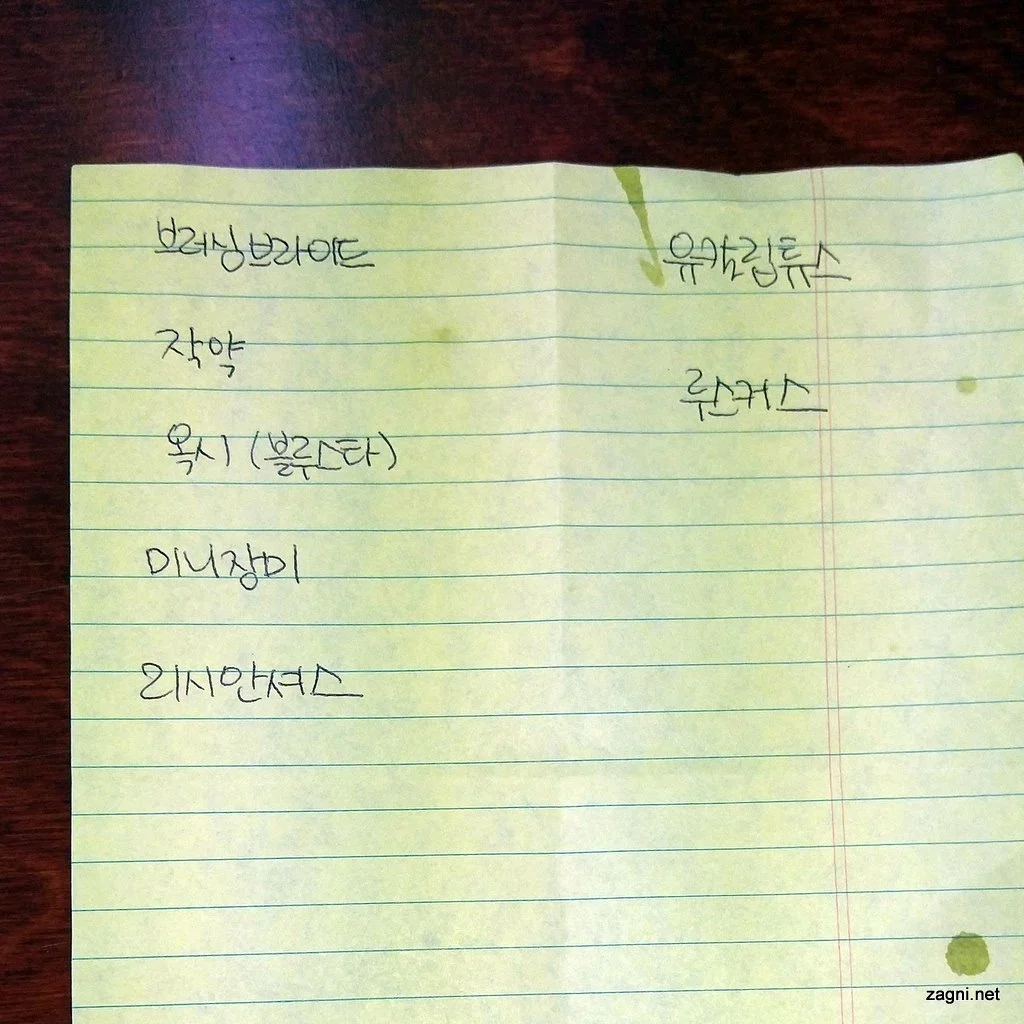 브러싱브라이트
작약
옥시 (블루스타)
미니장미
리시안셔스
유칼립튜스
루스커스
zagni.net